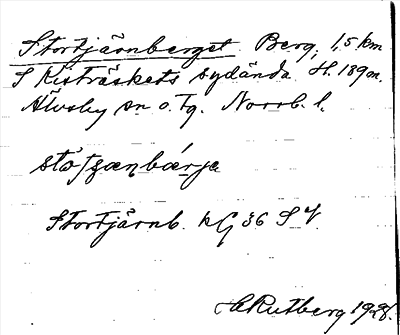 Stortjärnberget. Berg, 1,5 km
S Kisträskets sydända. H. 189 m.
Älvsby sn o. tg. Norrb. l.
Stortjärnb. kG 36 S V.
H Rutberg 1928.